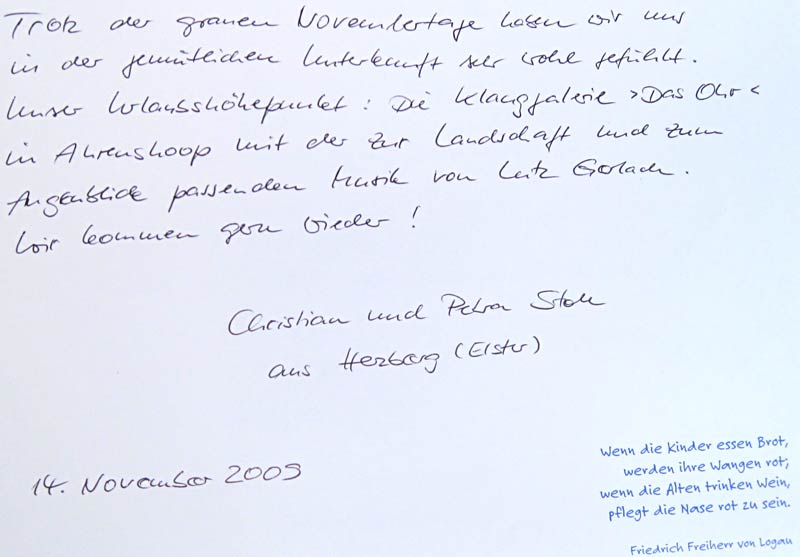 Trotz der grauen Novembertage haben wir uns
in der gemütlichen Unterkunft sehr wohl gefühlt.
Unser Urlaubshöhepunkt: Die Klanggalerie >Das Ohr<
in Ahrenshoop mit der zur Landschaft und zum
Augenblick passenden Musik von Lutz Gerlach.
Wir kommen gern wieder!
Christian und Petra
aus Herzberg (Elster)
14. November 2009
Wenn die Kinder essen Brot,
werden ihre Wangen rot;
wenn die Alten trinken Wein,
pflegt die Nase rot zu sein.
Friedrich Freiherr von Logau